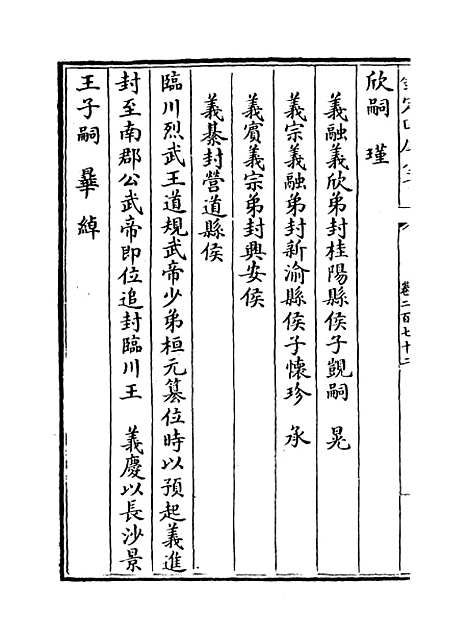 欣嗣　瑾
義融義欣弟封桂陽縣侯子覬嗣　晃
義宗義融弟封新渝縣侯子懷珍　承
義賓義宗弟封興安侯
義綦封營道縣侯
臨川烈武王道規武帝少弟桓元篡位時以預起義進
封至南郡公武帝即位追封臨川王　義慶以長沙景
王子嗣　曅　綽
卷二百七十二